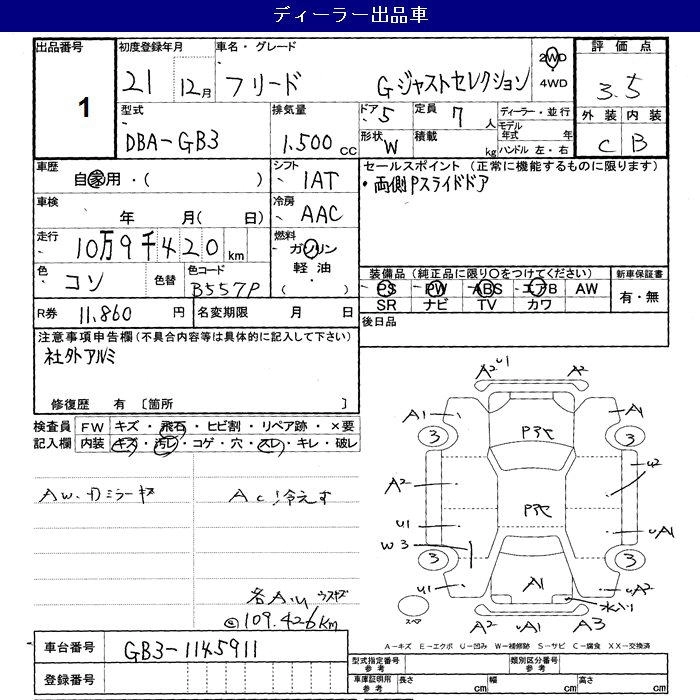 ディーラー出品車
出品番号 1
初度登録年月 21 12月
車名・グレード フリード Gジャストセレクション
2WD
4WD
評価点 3.5
外装 内装
C B
型式 DBA-GB3
排気量 1.500 cc
ドア 5 定員 7 人
ディーラー・並行
モデル年式 年
形状 W 積載 kg ハンドル 左・右
車歴 自家用・( )
シフト IAT
セールスポイント (正常に機能するものに限ります)
・両側Pスライドドア
車検 年 月( 日)
冷房 AAC
走行 10万9千420km
燃料 ガソリン
・
軽油・
( )
色 コン 色替 色コード B557P
装備品(純正品に限り○をつけてください) 新車保証書
PS PW ABS エアB AW 有・無
SR ナビ TV カワ
R券 11.860 円 名変期限 月 日
後日品
注意事項申告欄(不具合内容等は具体的に記入して下さい)
社外アルミ
修復歴 有 〔箇所 〕
検査員 FW キズ・飛石・ヒビ割・リペア跡・×要
記入欄 内装 キズ・汚レ・コゲ・穴・スレ・キレ・破レ
AW.Dミラーキズ
AC冷えず
各A.U ウスキズ
@109.426Km
A2 U1 A2
A1 A1
3 P3C 3
A2 U2
P3C
U1 UA1
W3
3 3
U1 A1 UA2
水入り
スペア
A2 UA1 A3
A-キズ E-エクボ U-凹み W-補修跡 S-サビ C-腐食 XX-交換済
車台番号 GB3-1145911
登録番号
型式指定番号 参考 類別区分番号 参考
車庫証明用 参考 長さ cm 幅 cm 高さ cm